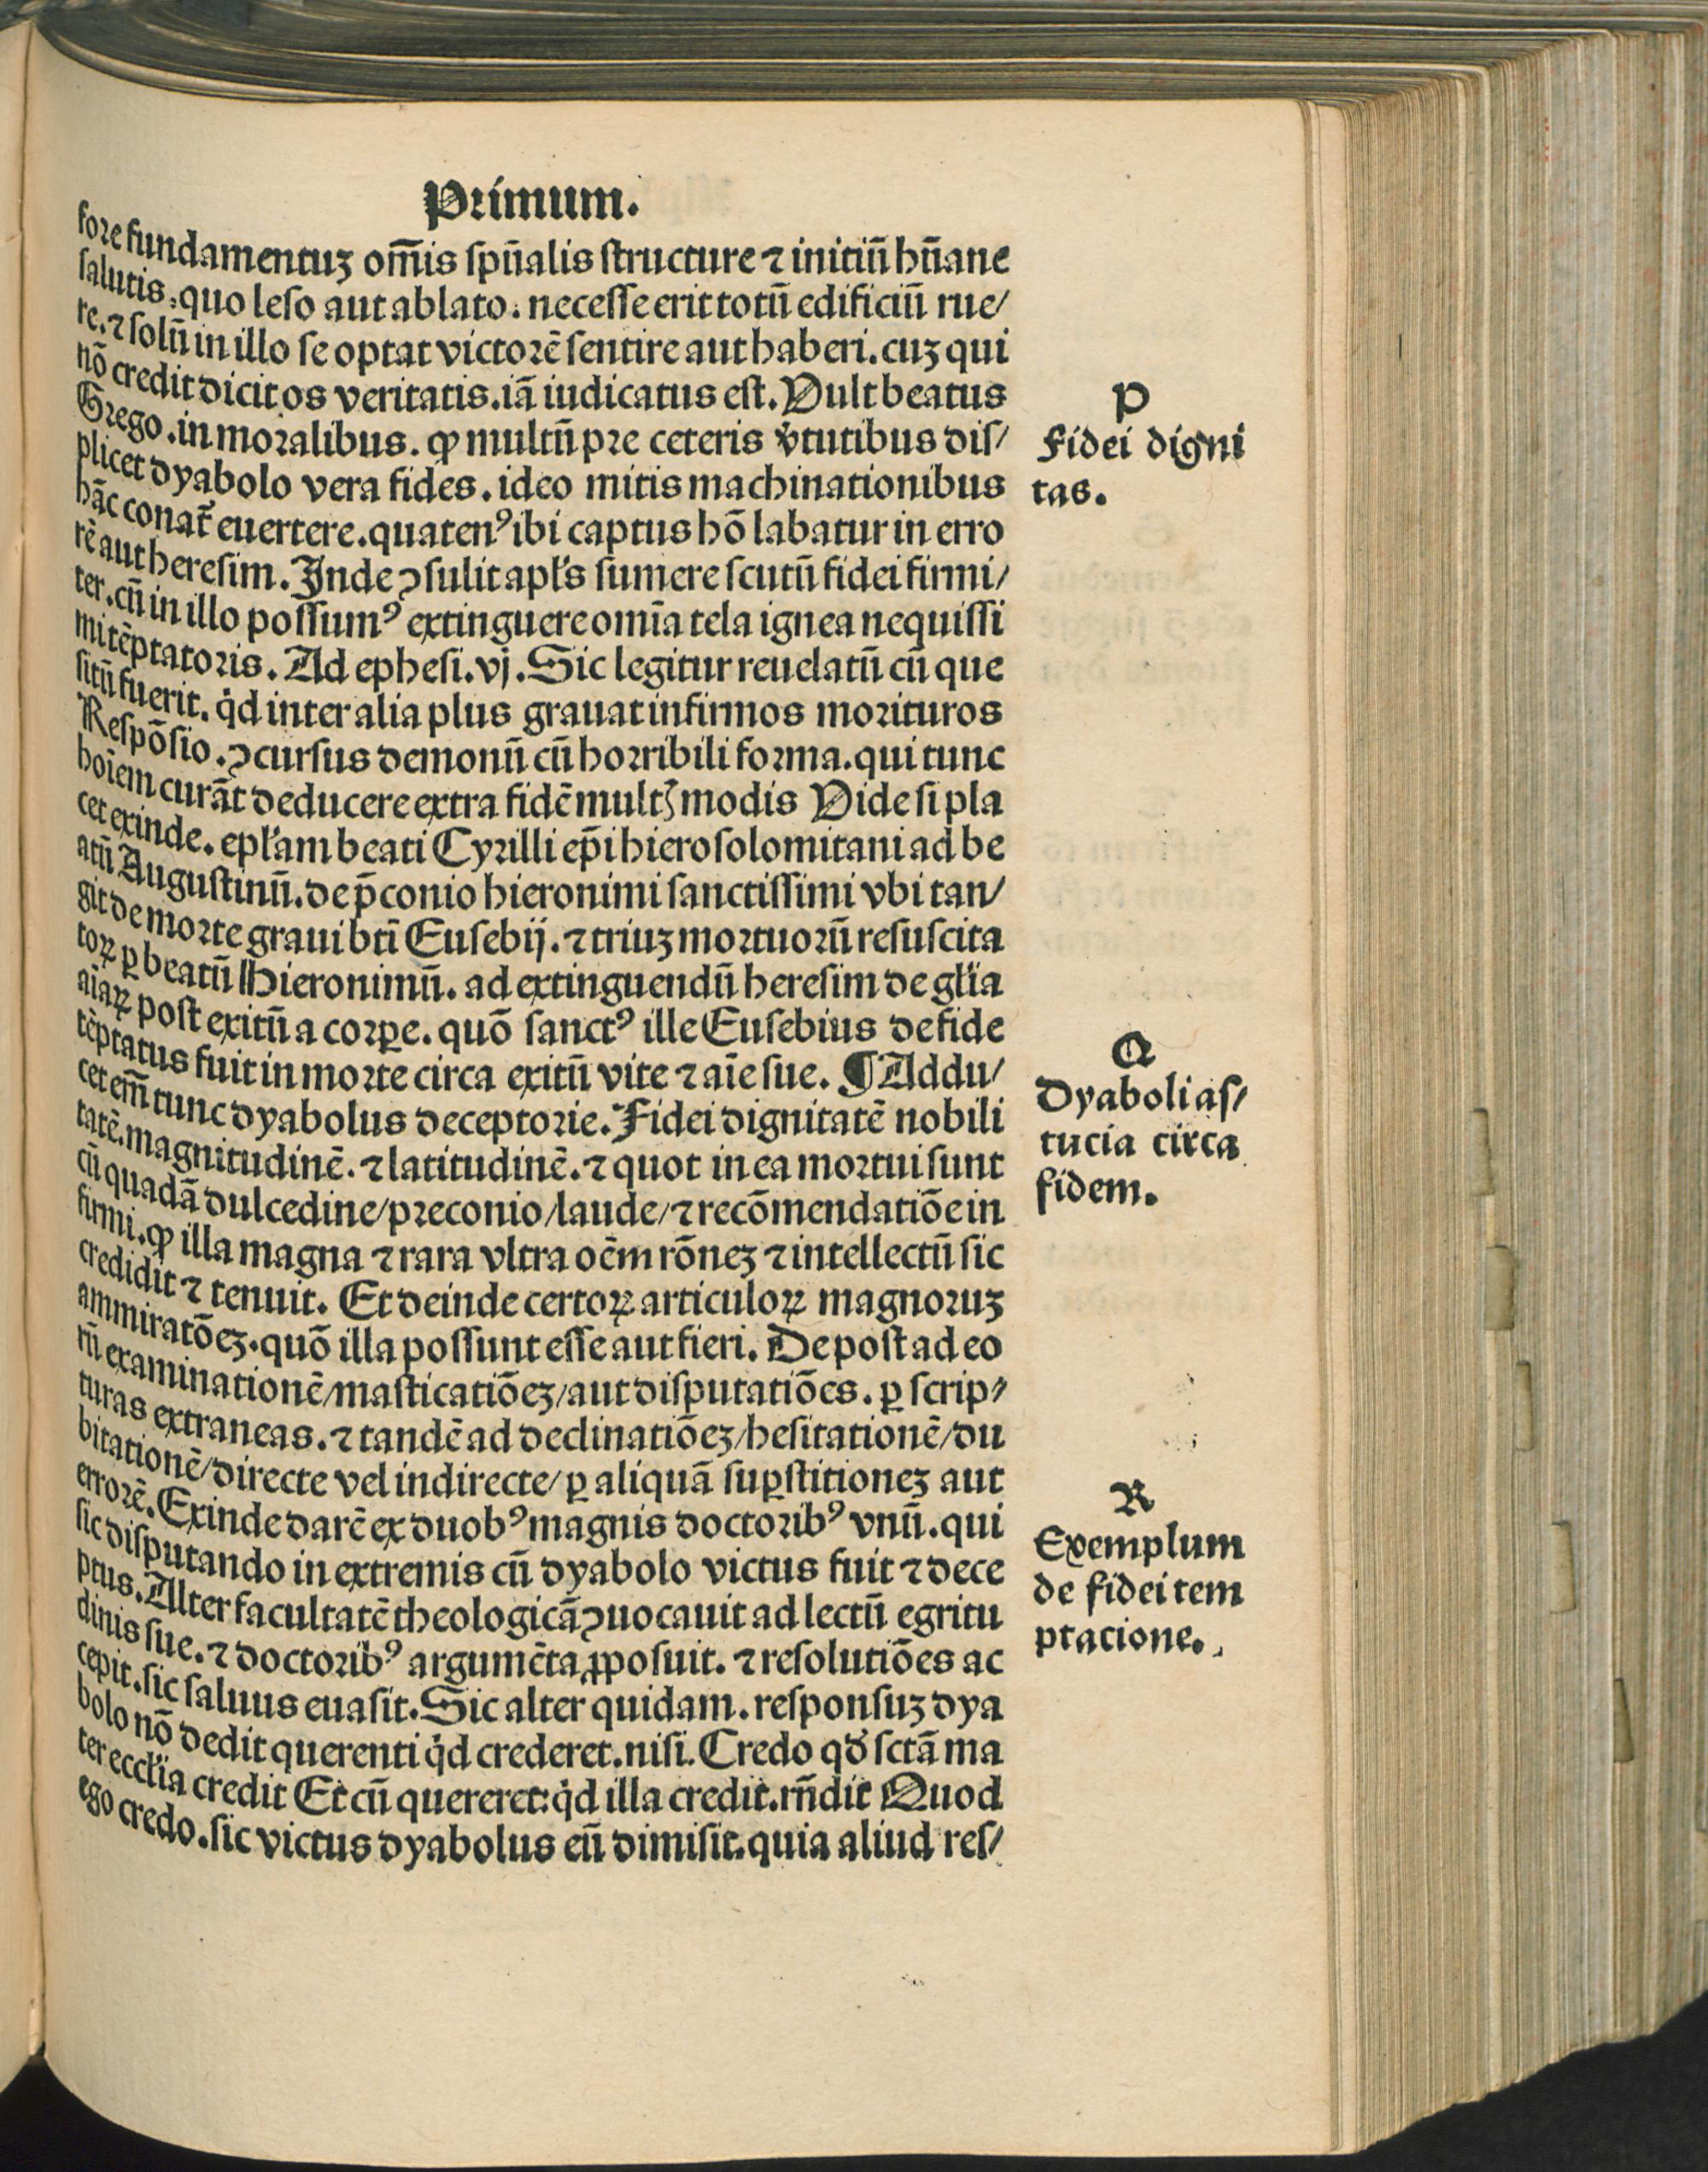 Primum.
fore fundamentuꝫ om̄is spūalis structure ⁊ initiū hūane
salutis. quo leso aut ablato. necesse erit totū edificiū rue/
re. ⁊ solū in illo se optat victorē sentire aut haberi. cuꝫ qui
nō credit dicit os veritatis. iā iudicatus est. Vult beatus
Grego. in moralibus. ꝙ multū pre ceteris v̓tutibus dis/
plicet dyabolo vera fides. ideo mitis machinationibus
hāc conat̄ euertere. quatenꝰ ibi captus hō labatur in erro
rē aut heresim. Inde ꝯsulit apl̓s sumere scutū fidei firmi/
ter. cū in illo possumꝰ extinguere om̄ia tela ignea nequissi
mi tēptatoris. Ad ephesi. vj. Sic legitur reuelatū cū que
situ̅ fuerit. q̇d inter alia plus grauat infirmos morituros
Respōsio. ꝯcursus demonū cū horribili forma. qui tunc
hoīem curāt deducere extra fidē multꝭ modis Vide si pla
cet exinde. epl̓am beati Cyrilli ep̄i hierosolomitani ad be
atū Augustinū. de p̄conio hieronimi sanctissimi vbi tan/
git de morte graui bt̄i Eusebij. ⁊ triuꝫ mortuorū resuscita
toꝝ ꝑ beatū Hieronimū. ad extinguendū heresim de gl̓ia
aīaꝝ post exitū a corꝑe. quō sanctꝰ ille Eusebius de fide
tēptatus fuit in morte circa exitū vite ⁊ aīe sue. ¶ Addu/
cet em̄ tunc dyabolus deceptorie. Fidei dignitatē nobili
tatē. magnitudinē. ⁊ latitudinē. ⁊ quot in ea mortui sunt
cū quadā dulcedine/preconio/laude/⁊ recōmendatiōe in
firmi. ꝙ illa magna ⁊ rara vltra oēm rōneꝫ ⁊ intellectū sic
credidit ⁊ tenuit. Et deinde certoꝝ articuloꝝ magnoruꝫ
ammiratōeꝫ. quō illa possunt esse aut fieri. De post ad eo
rū examinationē/masticatiōeꝫ/aut disputatiōes. ꝑ scrip⸗
turas extraneas. ⁊ tandē ad declinatiōeꝫ/hesitationē/du
bitationē/directe vel indirecte/ꝑ aliquā suꝑstitioneꝫ aut
errorē. Exinde darē ex duobꝰ magnis doctoribꝰ vnū. qui
sic disputando in extremis cū dyabolo victus fuit ⁊ dece
ptus. Alter facultatē theologicā ꝯuocauit ad lectū egritu
dinis sue. ⁊ doctoribꝰ argumēta ꝓposuit. ⁊ resolutiōes ac
cepit. sic saluus euasit. Sic alter quidam. responsuꝫ dya
bolo nō dedit querenti q̇d crederet. nisi. Credo qđ sctā ma
ter eccl̓ia credit Et cū quereret: q̇d illa credit. rn̄dit Quod
ego credo. sic victus dyabolus eū dimisit. quia aliud res/
P
Fidei digni
tas.
Q
Dyaboli as/
tucia circa
fidem.
R
Exemplum
de fidei tem
ptacione.